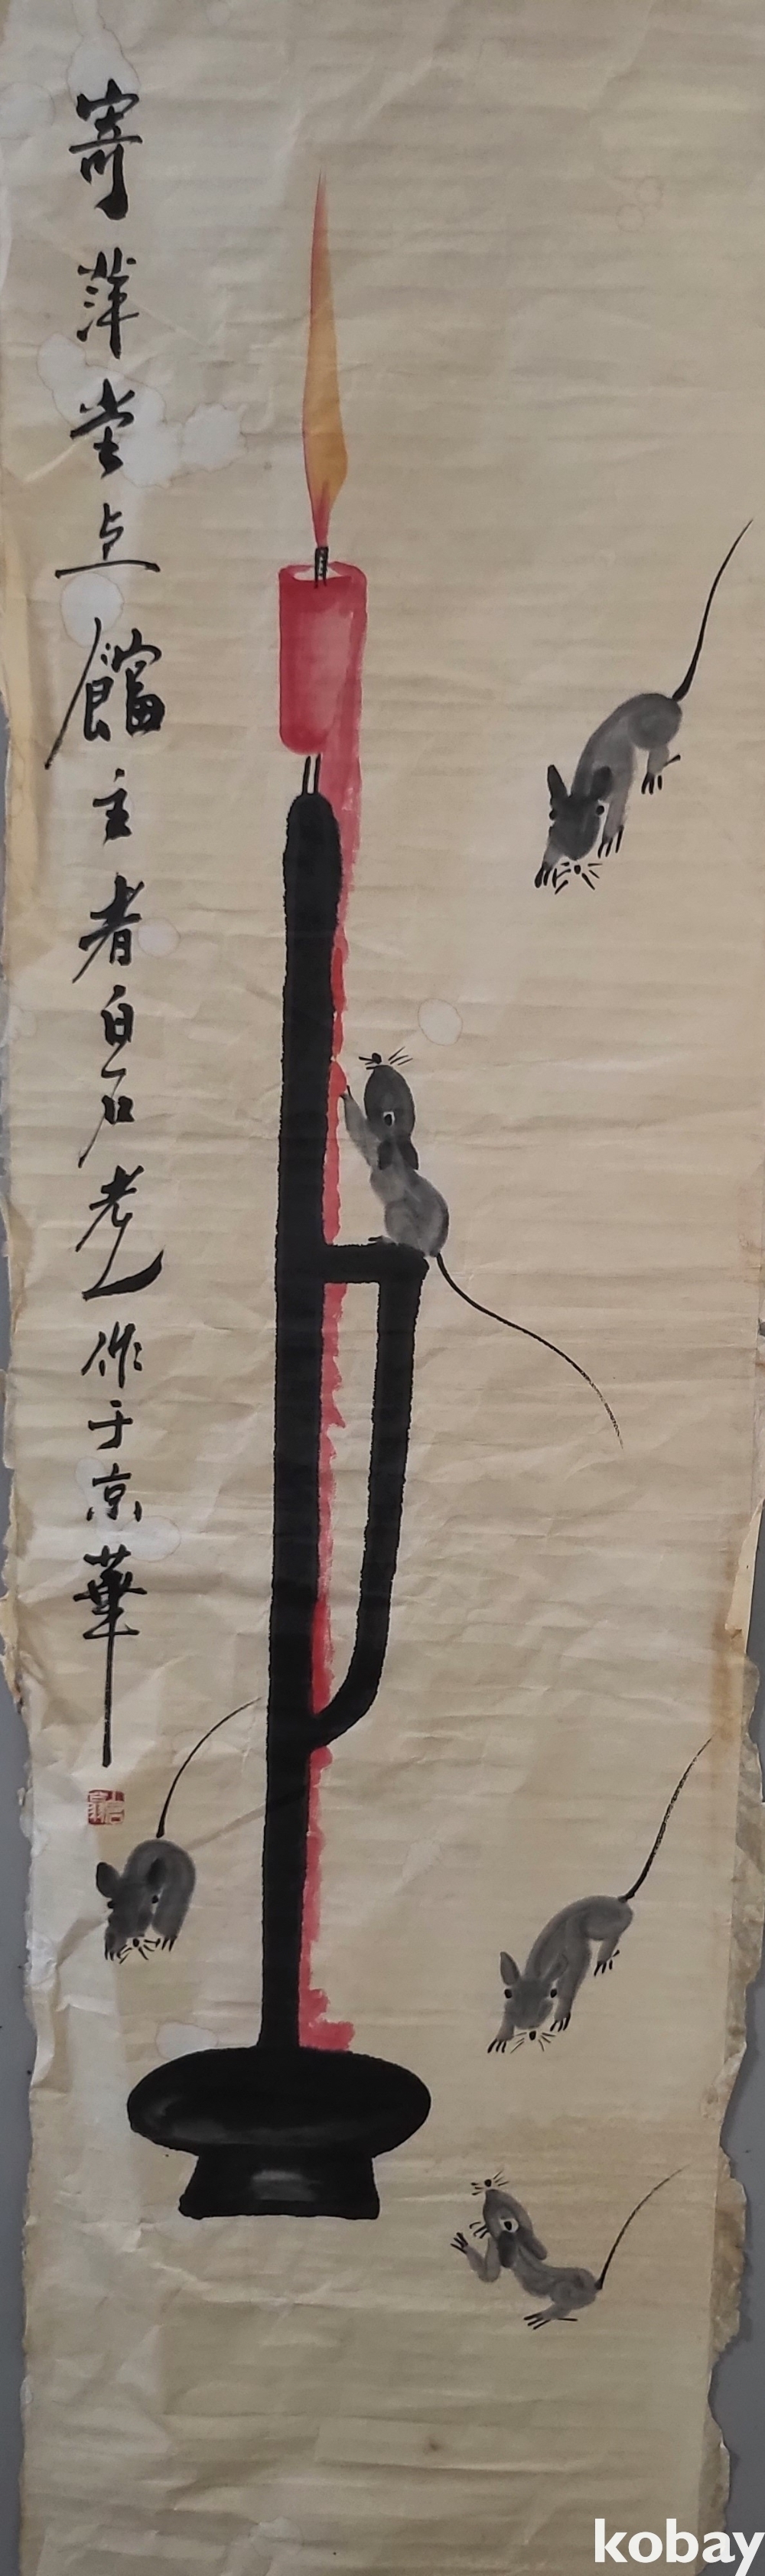 寄萍堂上饙主者白石老人作于京華
kobay